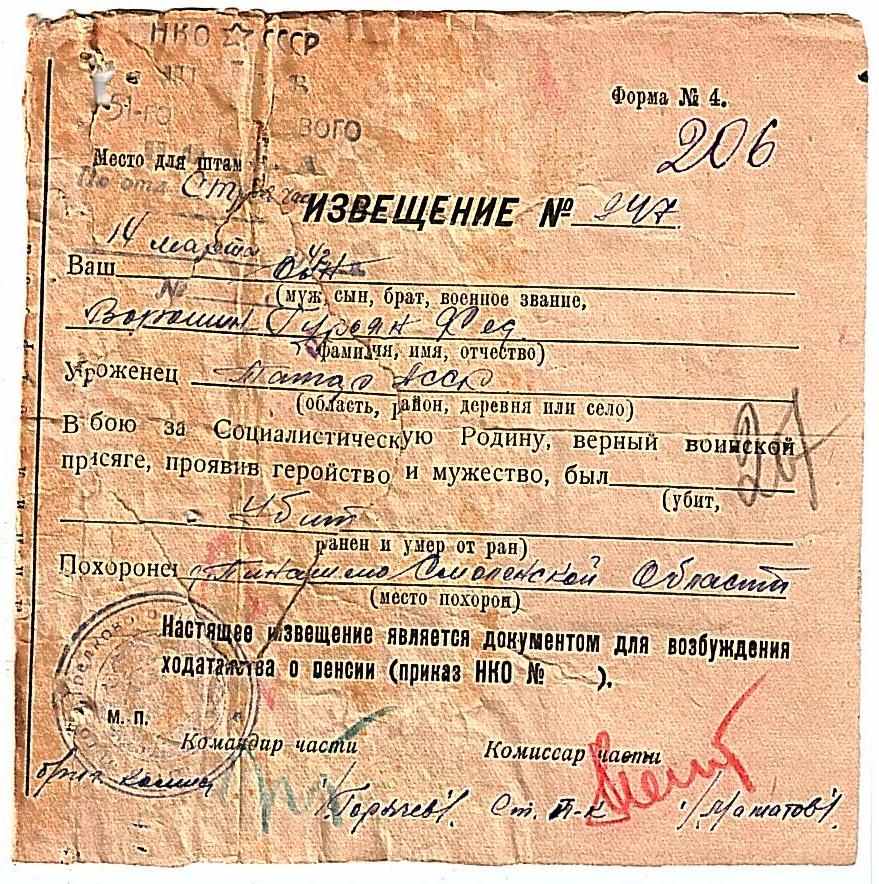 НКО ☆ СССР
51-го
Форма № 4.
206
Место для штам
ИЗВЕЩЕНИЕ № 247
14 марта 42
Ваш сын
№
(муж, сын, брат, военное звание,
Ворошин Гурьян Фед
(фамилия, имя, отчество)
Уроженец Татар АССР
(область, район, деревня или село)
В бою за Социалистическую Родину, верный воинской
207
присяге, проявив геройство и мужество, был
(убит,
убит
ранен и умер от ран)
Похоронен Смоленской Области
(место похорон)
Настоящее извещение является документом для возбуждения
ходатайства о пенсии (приказ НКО № ).
М. П.
Командир части Комиссар части
/Горячев/ Ст. /Маматов/